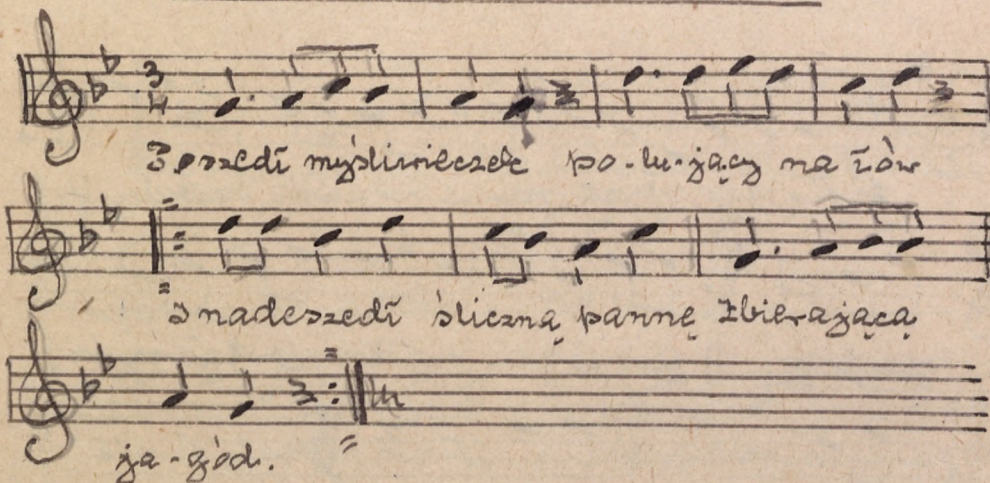 Poszedł myśliwieczek po-lu-jący na łów
I nadeszedł śliczną pannę zbierającą
ja-gód.